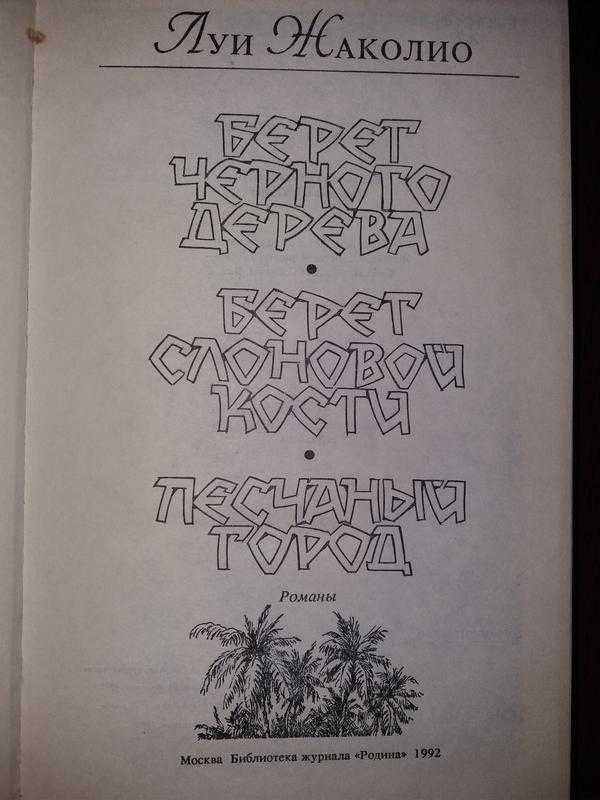 Луи Жаколио
БЕРЕГ
ЧЕРНОГО
ДЕРЕВА
•
БЕРЕГ
СЛОНОВОЙ
КОСТИ
•
ПЕСЧАНЫЙ
ГОРОД
Романы
Москва Библиотека журнала «Родина» 1992